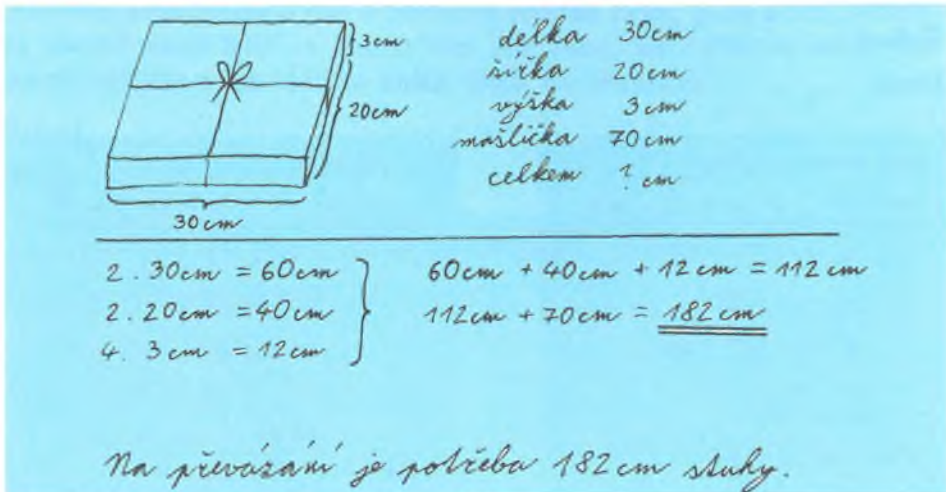 3cm
20cm
30cm
délka 30cm
šířka 20cm
výška 3cm
mašlička 70cm
celkem ? cm
2. 30cm = 60cm
2. 20cm = 40cm
4. 3cm = 12cm
60cm + 40cm + 12cm = 112cm
112cm + 70cm = 182cm
Na převázání je potřeba 182cm stuhy.